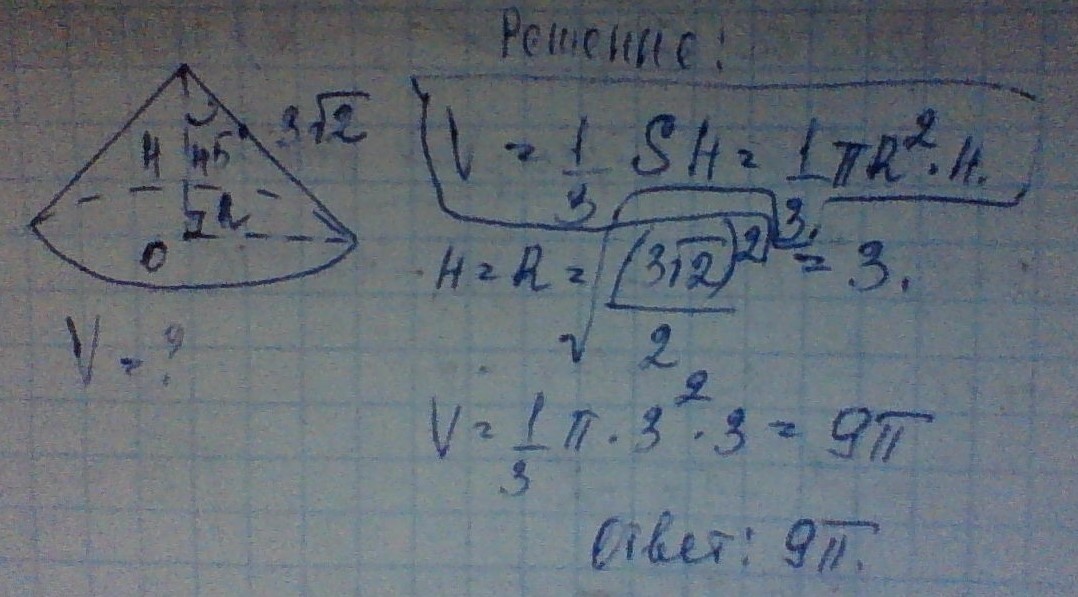 Решение:
3√2
H 45
R
O
V = 1/3 SH = 1/3 πR² · H.
H = R = √((3√2)²/2) = 3.
V = ?
V = 1/3 π · 3² · 3 = 9π
Ответ: 9π.